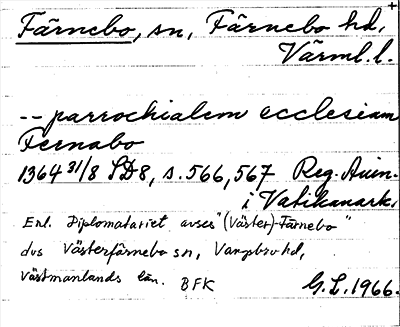 Färnebo, sn, Färnebo hd, +
Värml. l.
-- parrochialem ecclesiam
Fernabo
1364 31/8 SD8, s. 566, 567 Reg. Avin.
i Vatikanark.
Enl. Diplomatariet avses "(Väster)-Färnebo"
dvs Västerfärnebo sn, Vangsbro hd,
Västmanlands län. BFK
G. L. 1966.